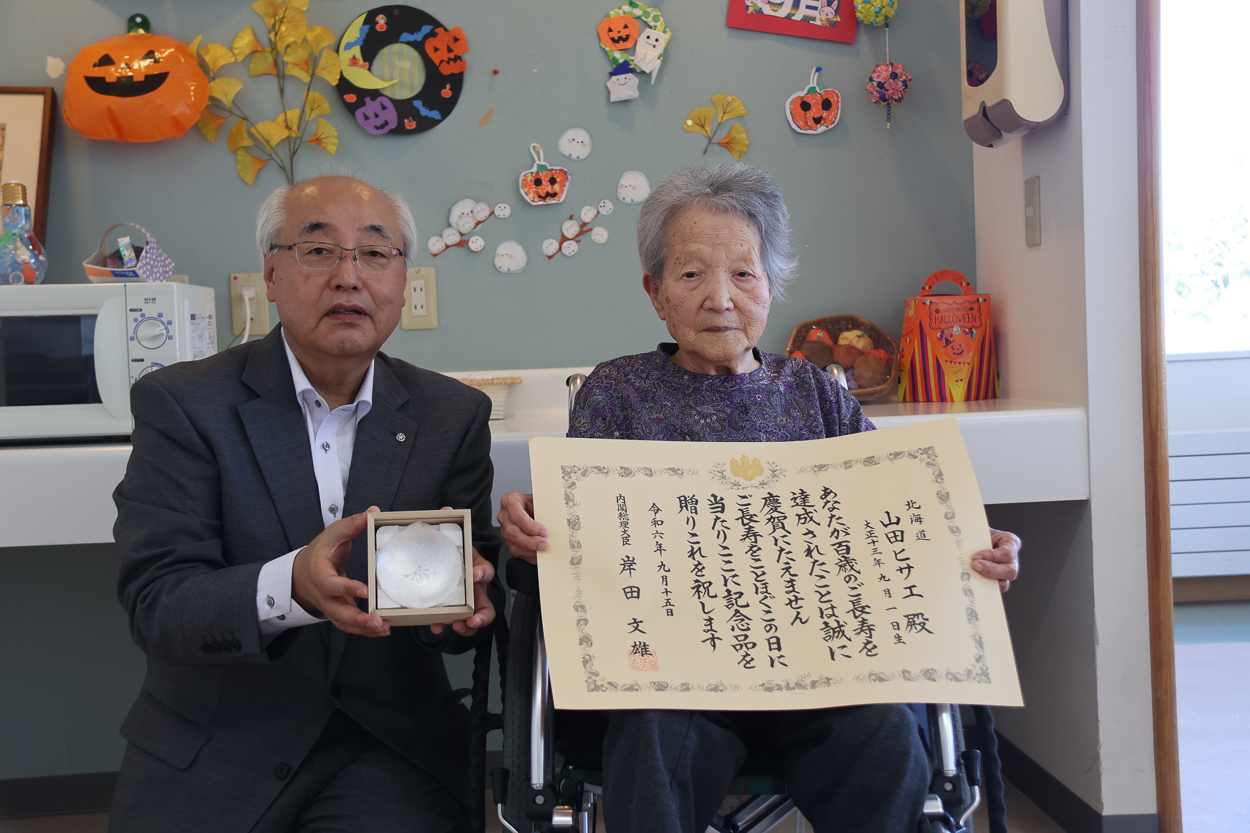 9月
HALLOWEEN
寿
北海道
山田ヒサエ 殿
大正十三年 九月 一日生
あなたが百歳のご長寿を
達成されたことは誠に
慶賀にたえません
ご長寿をことほぐこの日に
当たりここに記念品を
贈りこれを祝します
令和六年 九月十五日
内閣総理大臣 岸田 文雄